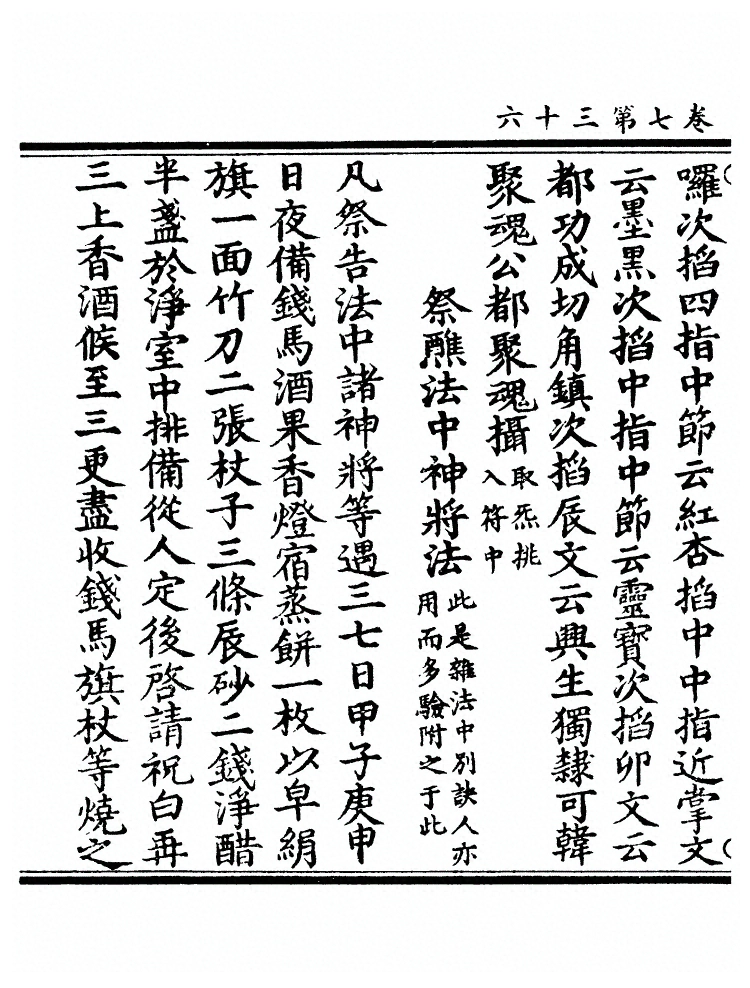 卷七第三十六
囉次搯四指中節云紅杏搯中中指近掌文
云墨黑次搯中指中節云靈寶次搯卯文云
都功成切角鎮次搯辰文云興生獨隸可韓
聚魂公都聚魂攝取炁排入符中
祭醮法中神將法此是雜法中別訣人亦用而多驗附之于此
凡祭告法中諸神將等遇三七日甲子庚申
日夜備錢馬酒果香燈宿蒸餅一枚以皁絹
旗一面竹刀二張杖子三條辰砂二錢淨醋
半盞於淨室中排備從人定後啓請祝白再
三上香酒候至三更盡收錢馬旗杖等燒之